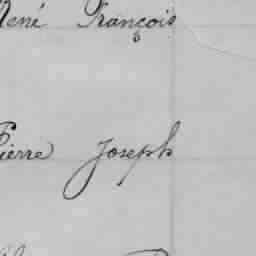 René François
Pierre Joseph